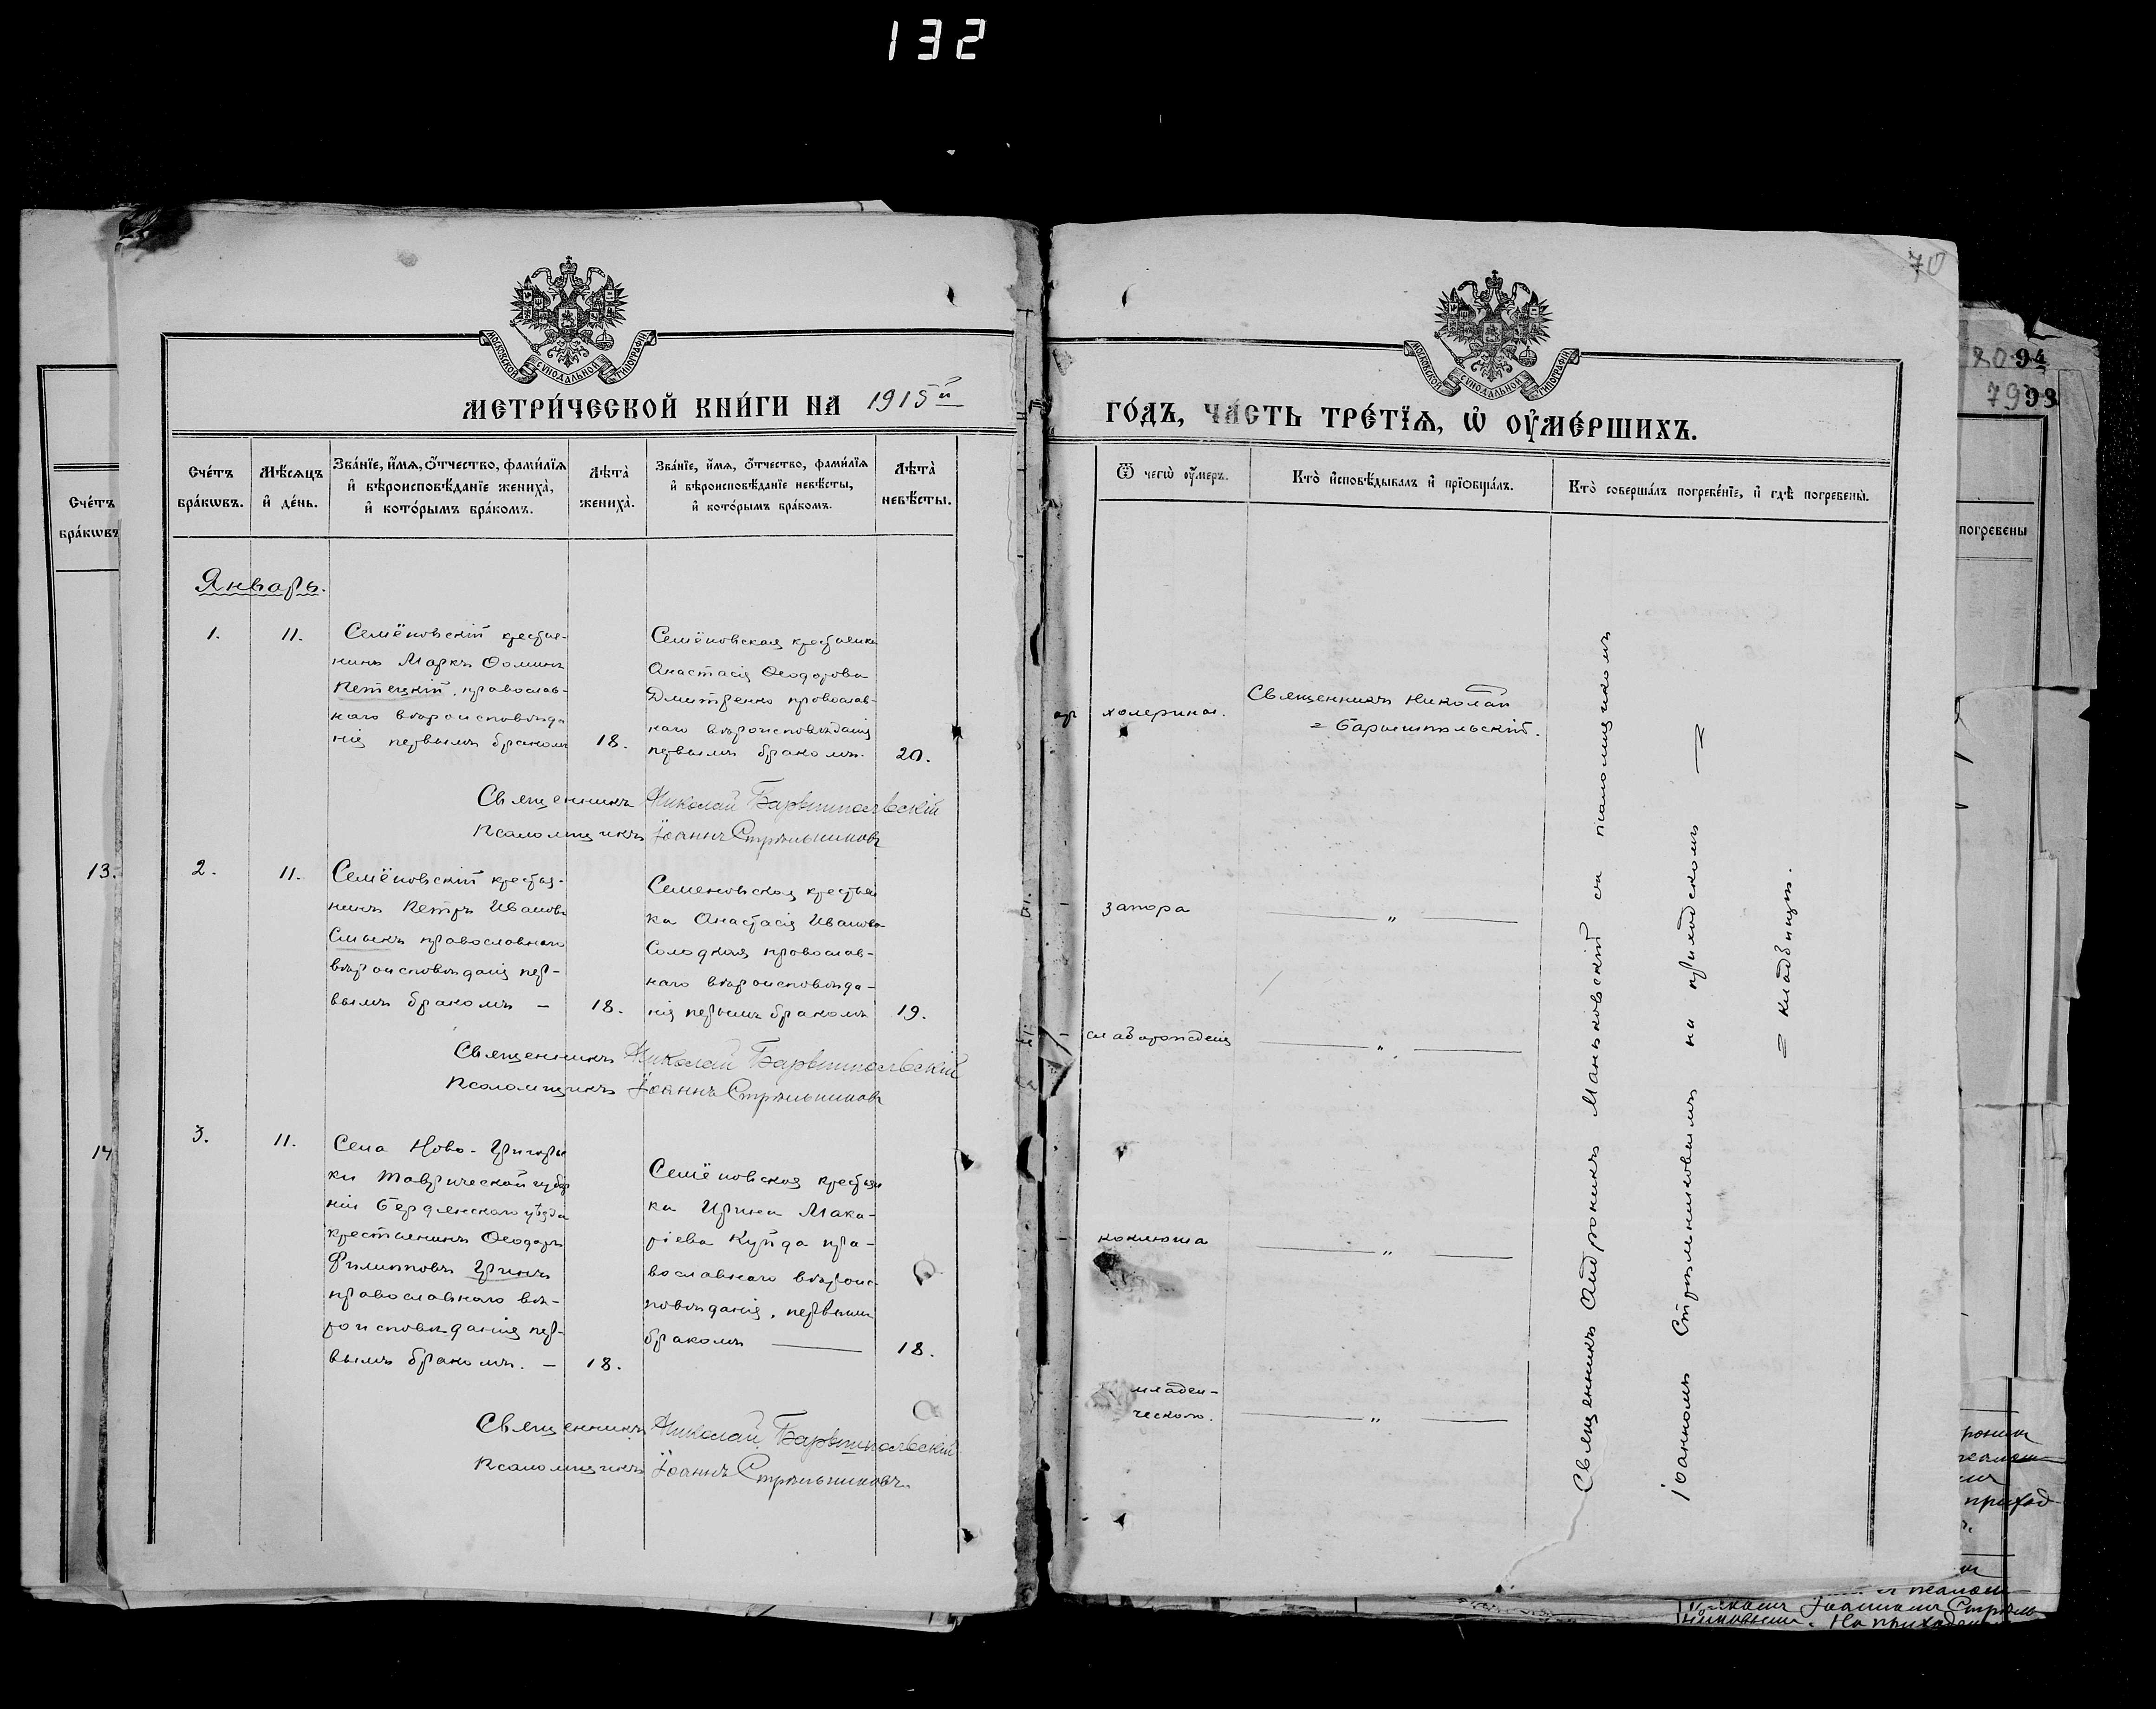 132
МОСКОВСКОЙ СѴНОДАЛЬНОЙ ТИПОГРАФІИ
МЕТРИ́ЧЕСКОЙ КНИ́ГИ НА 1915й
Счётъ бра́кѡвъ.
Мѣ́сяцъ и҆ де́нь.
Зва́нїе, и҆́мѧ, ѻ҆́тчество, фами́лїѧ
и҆ вѣроисповѣ́данїе жениха̀,
и҆ кото́рымъ бра́комъ.
Лѣта̀ жениха̀.
Зва́нїе, и҆́мѧ, ѻ҆́тчество, фами́лїѧ
и҆ вѣроисповѣ́данїе невѣ́сты,
и҆ кото́рымъ бра́комъ.
Лѣта̀ невѣ́сты.
Январь.
1.
11.
Семёновскій крестья-
нинъ Маркъ Ѳоминъ
Петецкій, православ-
наго вѣроисповѣда
нія первымъ бракомъ
18.
Семёновская крестьянка
Анастасія Ѳеодорова
Дмитренко православ-
наго вѣроисповѣданія
первымъ бракомъ.
20.
Священникъ Николай Барышпольскій
Псаломщикъ Іоаннъ Стрѣльниковъ
2.
11.
Семёновскій крестья-
нинъ Петръ Ивановъ
Смыкъ православнаго
вѣроисповѣданія пер-
вымъ бракомъ —
18.
Семеновская крестьян
ка Анастасія Иванова
Солодкая православ-
наго вѣроисповѣда-
нія первымъ бракомъ
19.
Священникъ Николай Барышпольскій
Псаломщикъ Іоаннъ Стрѣльниковъ
3.
11.
Села Ново-Григорьев
ки Таврической губер
ніи Бердянскаго уѣзда
крестьянинъ Ѳеодоръ
Филипповъ Гринь
православнаго вѣ-
роисповѣданія пер-
вымъ бракомъ. —
18.
Семёновская крестьян
ка Ирина Мака-
ріева Куйда пра-
вославнаго вѣроис-
повѣданія, первымъ
бракомъ
18.
Священникъ Николай Барышпольскій
Псаломщикъ Іоаннъ Стрѣльниковъ
Счётъ
бра́кѡвъ
13.
14
70
МОСКОВСКОЙ СѴНОДАЛЬНОЙ ТИПОГРАФІИ
ГО́ДЪ, ЧА́СТЬ ТРЕ́ТЇѦ, Ѡ҆ ОУ҆МЕ́РШИХЪ.
Ѿ чегѡ̀ оу҆́меръ.
Кто̀ и҆сповѣ́дывалъ и҆ прїѡбща́лъ.
Кто̀ соверша́лъ погребе́нїе, и҆ гдѣ̀ погребены̀.
холерины.
Священникъ Николай
= Барышпольскій.
запора
— „ —
слаборожденія
— „ —
коклюша
— „ —
младен-
ческою.
— „ —
Священникъ Андроникъ Маньковскій съ псаломщикомъ
Іоанномъ Стрѣльниковымъ на приходскомъ —
= кладбищѣ.
94
79 93
погребены
приход-
Іоанномъ Стрѣль
никовымъ. На приходском